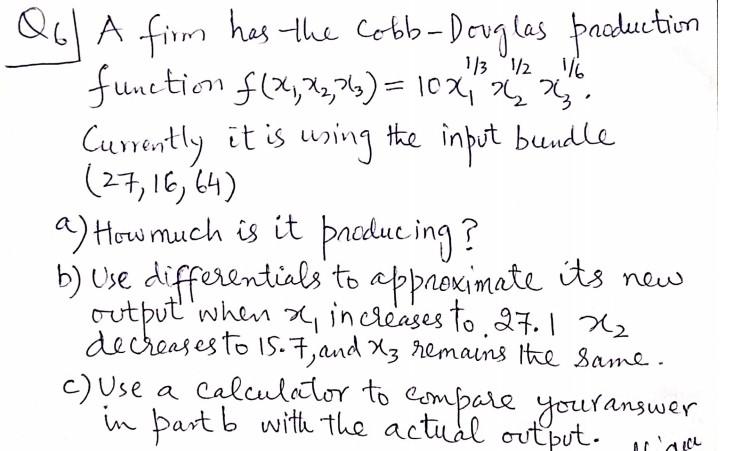 Q6) A firm has the Cobb-Douglas production
function f(x₁,x₂,x₃) = 10x₁^1/3 x₂^1/2 x₃^1/6.
Currently it is using the input bundle
(27, 16, 64)
a) How much is it producing?
b) Use differentials to approximate its new
output when x₁ increases to 27.1 x₂
decreases to 15.7, and x₃ remains the same.
c) Use a calculator to compare your answer
in part b with the actual output.